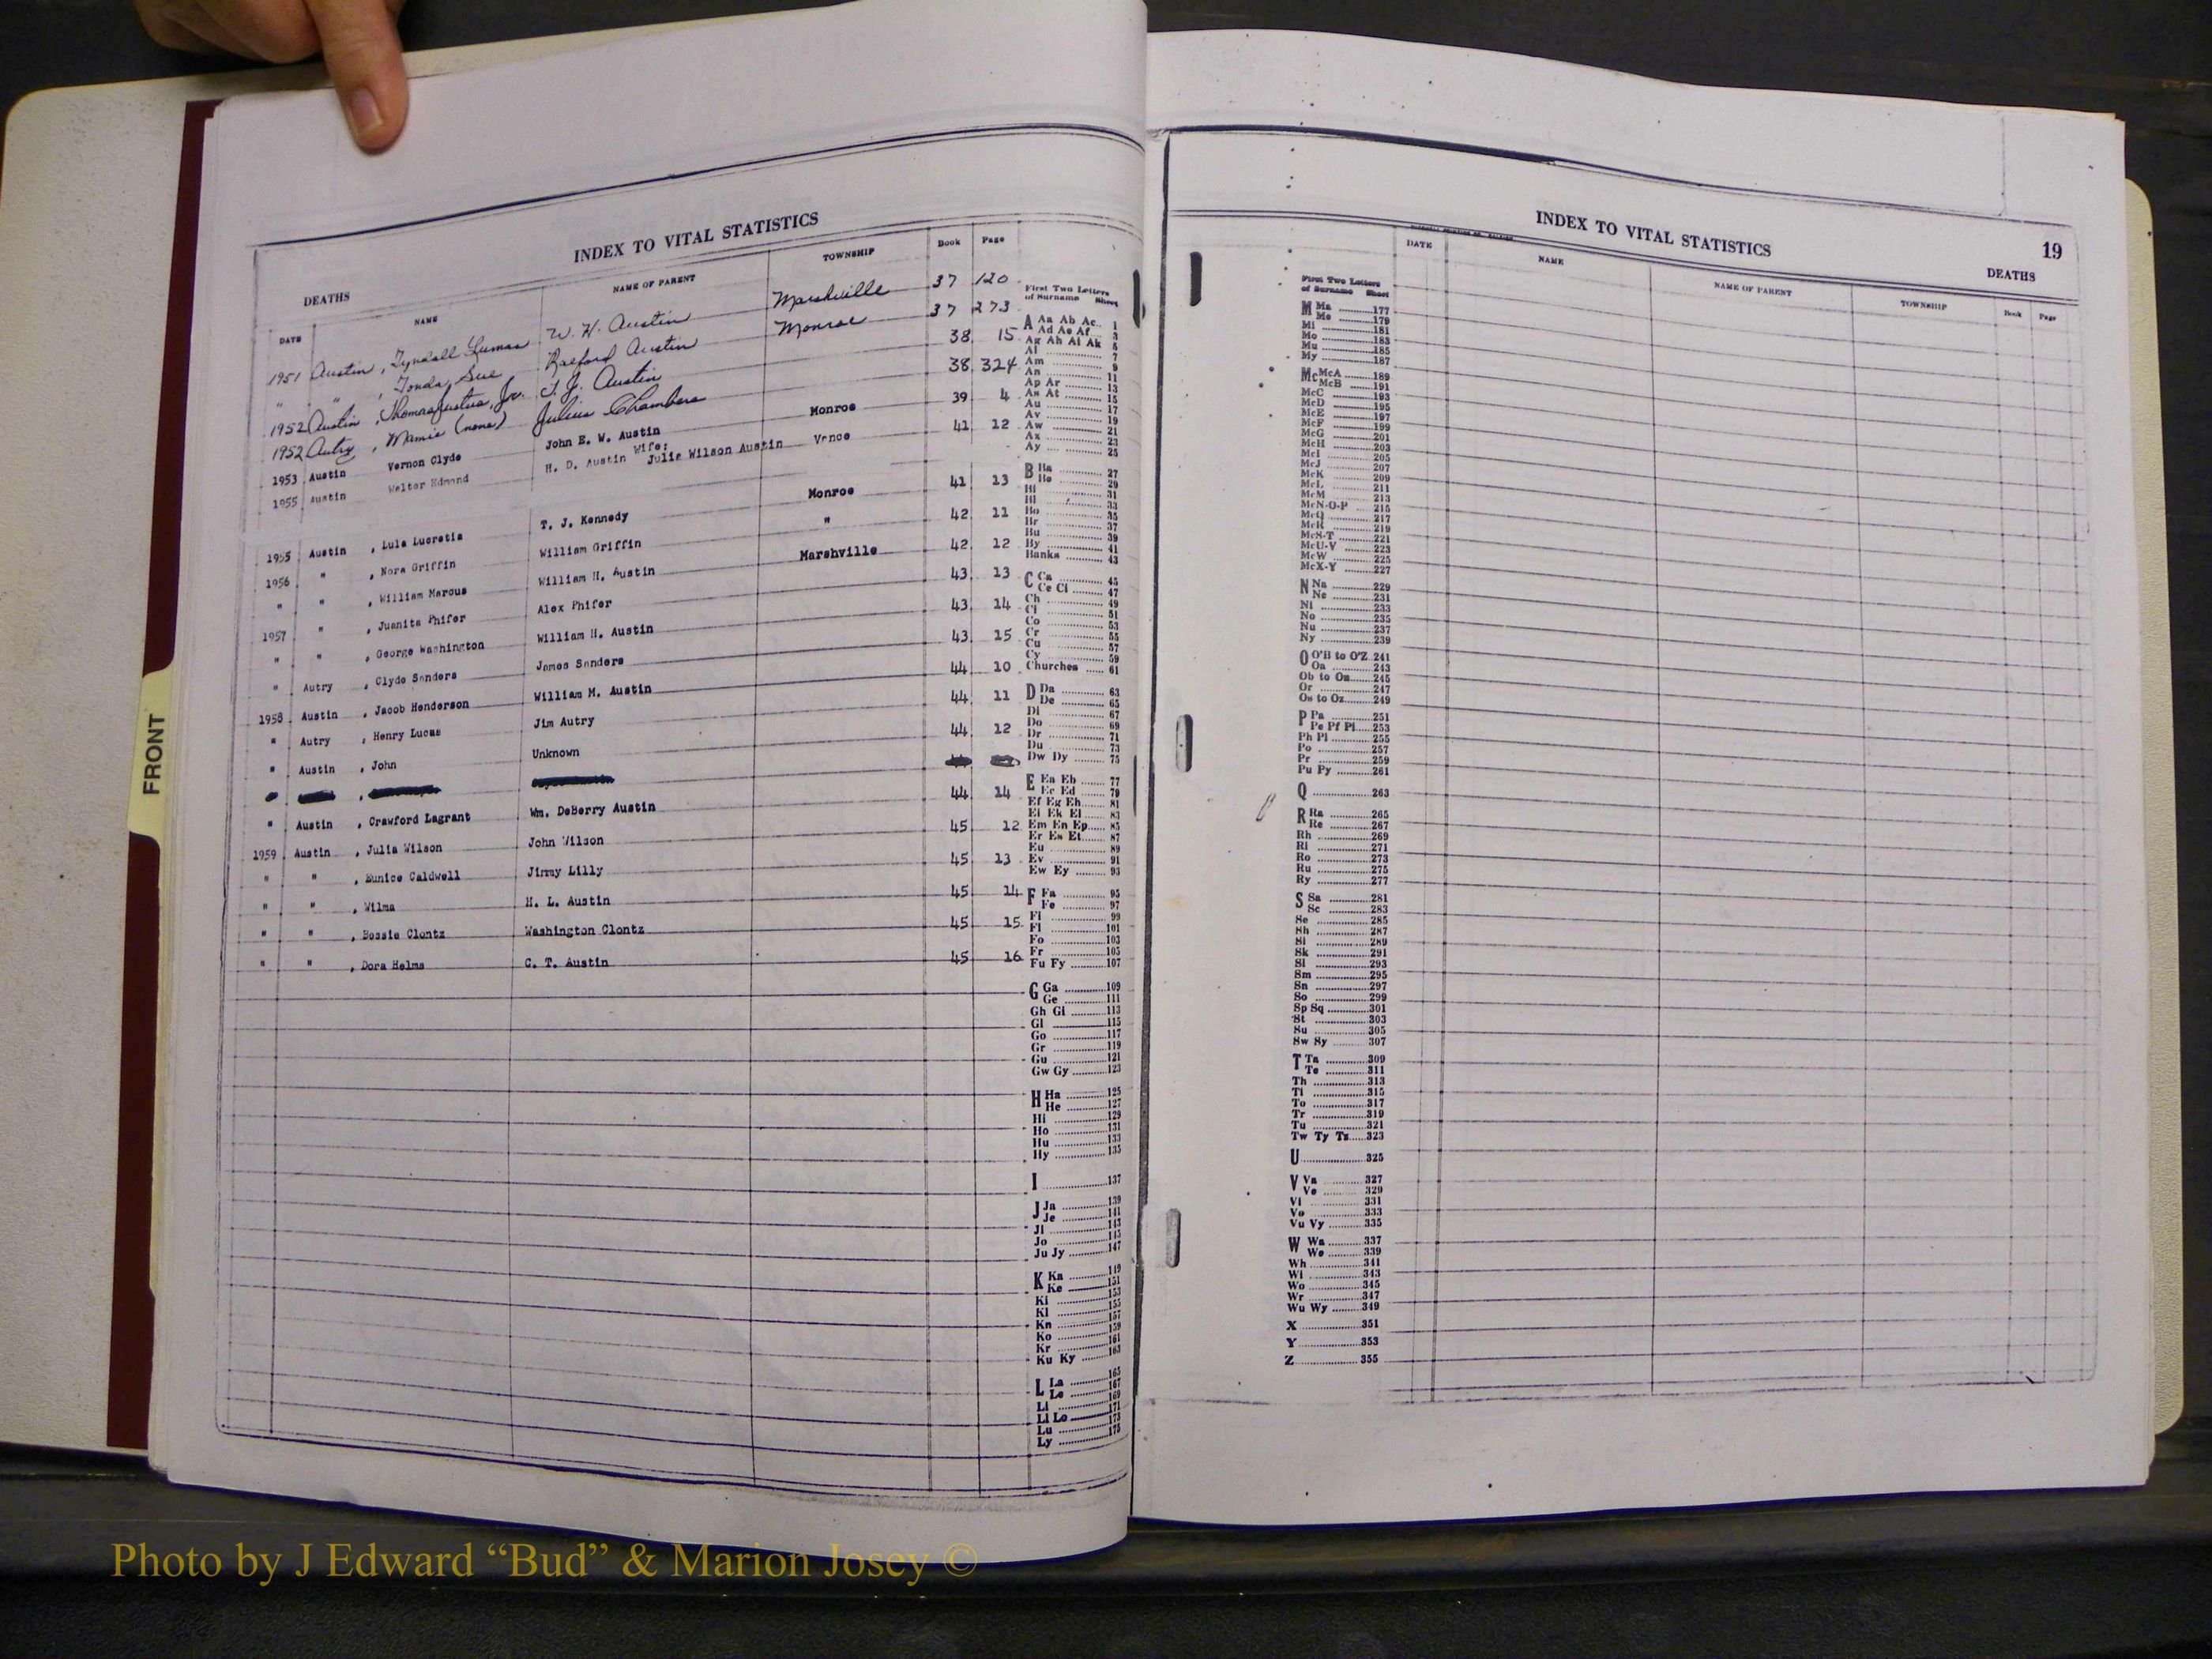 INDEX TO VITAL STATISTICS
DEATHS
DATE NAME NAME OF PARENT TOWNSHIP Book Page
1951 Austin, Tyndall Lumas W. H. Austin Marshville 37 120
" ", Tonda Sue Ralford Austin Monroe 37 273
1952 Austin, Thomas Justus, Jr. T. J. Austin 38 15
1952 Autry, Mamie (none) Julius Chambers 38 324
1953 Austin Vernon Clyde John E. W. Austin Monroe 39 4
1955 Austin Walter Edmond H. D. Austin Wife: Julia Wilson Austin Vance 41 12
1955 Austin, Lula Lucretia T. J. Kennedy Monroe 41 13
1956 ", Nora Griffin William Griffin " 42 11
" ", William Marcus William H. Austin Marshville 42 12
1957 ", Juanita Phifer Alex Phifer 43 13
" ", George Washington William H. Austin 43 14
" Autry, Clyde Sanders James Sanders 43 15
1958 Austin, Jacob Henderson William M. Austin 44 10
" Autry, Henry Lucas Jim Autry 44 11
" Austin, John Unknown 44 12
" Austin, Crawford Lagrant Wm. DeBerry Austin 44 14
1959 Austin, Julia Wilson John Wilson 45 12
" ", Eunice Caldwell Jimmy Lilly 45 13
" ", Wilma H. L. Austin 45 14
" ", Bessie Clontz Washington Clontz 45 15
" ", Dora Helms C. T. Austin 45 16
First Two Letters
of Surname Sheet
A Aa Ab Ac 1
Ad Ae Af 3
Ag Ah Ai Ak 5
Al 7
Am 9
An 11
Ap Ar 13
As At 15
Au 17
Av 19
Aw 21
Ax 23
Ay 25
B Ba 27
Be 29
Bi 31
Bl 33
Bo 35
Br 37
Bu 39
By 41
Banks 43
C Ca 45
Ce Ci 47
Ch 49
Cl 51
Co 53
Cr 55
Cu 57
Cy 59
Churches 61
D Da 63
De 65
Di 67
Do 69
Dr 71
Du 73
Dw Dy 75
E Ea Eb 77
Ec Ed 79
Ef Eg Eh 81
Ei Ek El 83
Em En Ep 85
Er Es Et 87
Eu 89
Ev 91
Ew Ey 93
F Fa 95
Fe 97
Fi 99
Fl 101
Fo 103
Fr 105
Fu Fy 107
G Ga 109
Ge 111
Gh Gi 113
Gl 115
Go 117
Gr 119
Gu 121
Gw Gy 123
H Ha 125
He 127
Hi 129
Ho 131
Hu 133
Hy 135
I 137
J Ja 139
Je 141
Ji 143
Jo 145
Ju Jy 147
K Ka 149
Ke 151
Ki 153
Kl 155
Kn 157
Ko 159
Kr 161
Ku Ky 163
L La 165
Le 167
Li 169
Ll Lo 171
Lu 173
Ly 175
INDEX TO VITAL STATISTICS 19
DEATHS
DATE NAME NAME OF PARENT TOWNSHIP Book Page
First Two Letters
of Surname Sheet
M Ma 177
Me 179
Mi 181
Mo 183
Mu 185
My 187
Mc McA 189
McB 191
McC 193
McD 195
McE 197
McF 199
McG 201
McH 203
McI 205
McJ 207
McK 209
McL 211
McM 213
McN-O-P 215
McQ 217
McR 219
McS-T 221
McU-V 223
McW 225
McX-Y 227
N Na 229
Ne 231
Ni 233
No 235
Nu 237
Ny 239
O O'B to O'Z 241
Oa 243
Ob to On 245
Or 247
Os to Oz 249
P Pa 251
Pe Pf Pi 253
Ph Pl 255
Po 257
Pr 259
Pu Py 261
Q 263
R Ra 265
Re 267
Rh 269
Ri 271
Ro 273
Ru 275
Ry 277
S Sa 281
Sc 283
Se 285
Sh 287
Si 289
Sk 291
Sl 293
Sm 295
Sn 297
So 299
Sp Sq 301
St 303
Su 305
Sw Sy 307
T Ta 309
Te 311
Th 313
Ti 315
To 317
Tr 319
Tu 321
Tw Ty Tz 323
U 325
V Va 327
Ve 329
Vi 331
Vo 333
Vu Vy 335
W Wa 337
We 339
Wh 341
Wi 343
Wo 345
Wr 347
Wu Wy 349
X 351
Y 353
Z 355
FRONT
Photo by J Edward “Bud” & Marion Josey ©